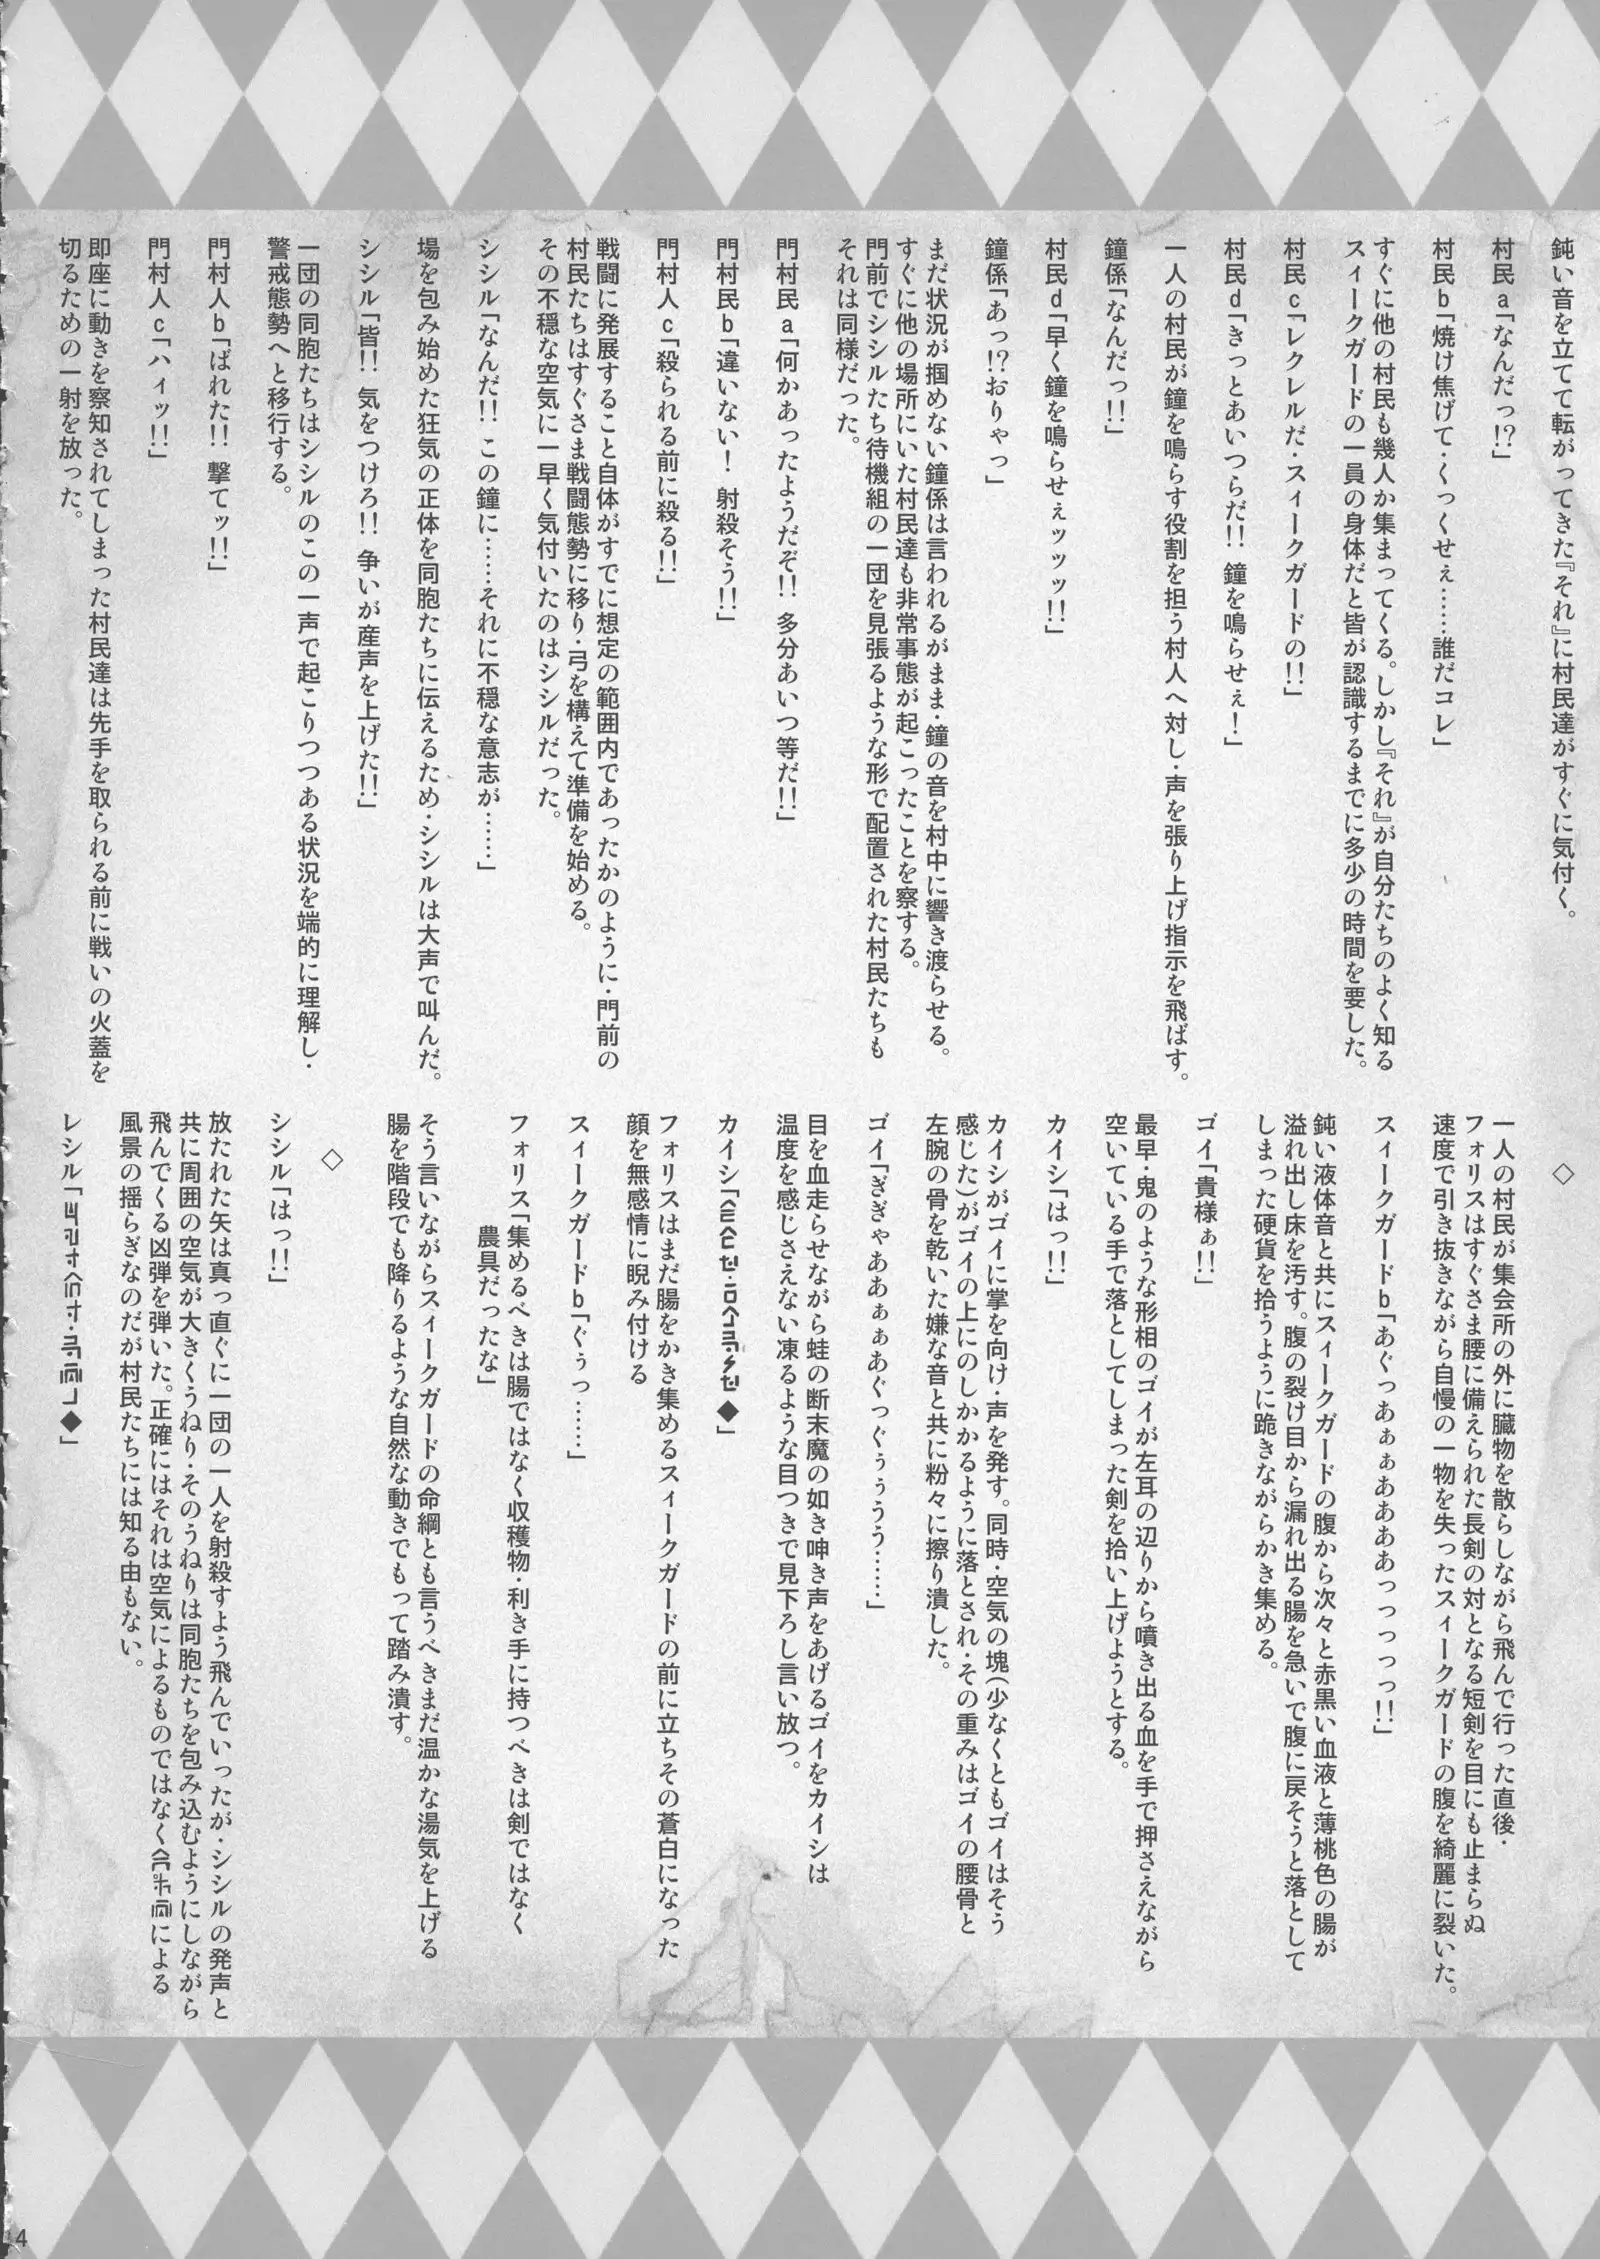 鈍い音を立てて転がってきた『それ』に村民達がすぐに気付く。
村民a「なんだっ!?」
村民b「焼け焦げて・くっくせぇ……誰だコレ」
すぐに他の村民も幾人か集まってくる。しかし『それ』が自分たちのよく知る
スィークガードの一員の身体だと皆が認識するまでに多少の時間を要した。
村民c「レクレルだ・スィークガードの!!」
村民d「きっとあいつらだ!! 鐘を鳴らせぇ!」
一人の村民が鐘を鳴らす役割を担う村人へ対し・声を張り上げ指示を飛ばす。
鐘係「なんだっ!!」
村民d「早く鐘を鳴らせぇッッッ!!」
鐘係「あっ!?おりゃっ」
まだ状況が掴めない鐘係は言われるがまま・鐘の音を村中に響き渡らせる。
すぐに他の場所にいた村民達も非常事態が起こったことを察する。
門前でシシルたち待機組の一団を見張るような形で配置された村民たちも
それは同様だった。
門村民a「何かあったようだぞ!! 多分あいつ等だ!!」
門村民b「違いない! 射殺そう!!」
門村人c「殺られる前に殺る!!」
戦闘に発展すること自体がすでに想定の範囲内であったかのように・門前の
村民たちはすぐさま戦闘態勢に移り・弓を構えて準備を始める。
その不穏な空気に一早く気付いたのはシシルだった。
シシル「なんだ!! この鐘に……それに不穏な意志が……」
場を包み始めた狂気の正体を同胞たちに伝えるため・シシルは大声で叫んだ。
シシル「皆!! 気をつけろ!! 争いが産声を上げた!!」
一団の同胞たちはシシルのこの一声で起こりつつある状況を端的に理解し・
警戒態勢へと移行する。
門村人b「ばれた!! 撃てッ!!」
門村人c「ハィッ!!」
即座に動きを察知されてしまった村民達は先手を取られる前に戦いの火蓋を
切るための一射を放った。
◇
一人の村民が集会所の外に臓物を散らしながら飛んで行った直後・
フォリスはすぐさま腰に備えられた長剣の対となる短剣を目にも止まらぬ
速度で引き抜きながら自慢の一物を失ったスィークガードの腹を綺麗に裂いた。
スィークガードb「あぐっあぁぁああああっっっっっ!!」
鈍い液体音と共にスィークガードの腹から次々と赤黒い血液と薄桃色の腸が
溢れ出し床を汚す。腹の裂け目から漏れ出る腸を急いで腹に戻そうと落として
しまった硬貨を拾うように跪きながらかき集める。
ゴイ「貴様ぁ!!」
最早・鬼のような形相のゴイが左耳の辺りから噴き出る血を手で押さえながら
空いている手で落としてしまった剣を拾い上げようとする。
カイシ「はっ!!」
カイシがゴイに掌を向け・声を発す。同時・空気の塊(少なくともゴイはそう
感じた)がゴイの上にのしかかるように落とされ・その重みはゴイの腰骨と
左腕の骨を乾いた嫌な音と共に粉々に擦り潰した。
ゴイ「ぎぎゃああぁぁあぐっぐぅぅうう……」
目を血走らせながら蛙の断末魔の如き呻き声をあげるゴイをカイシは
温度を感じさえない凍るような目つきで見下ろし言い放つ。
カイシ「◆」
フォリスはまだ腸をかき集めるスィークガードの前に立ちその蒼白になった
顔を無感情に睨み付ける
スィークガードb「ぐぅっ……」
フォリス「集めるべきは腸ではなく収穫物・利き手に持つべきは剣ではなく
農具だったな」
そう言いながらスィークガードの命綱とも言うべきまだ温かな湯気を上げる
腸を階段でも降りるような自然な動きでもって踏み潰す。
◇
シシル「はっ!!」
放たれた矢は真っ直ぐに一団の一人を射殺すよう飛んでいったが・シシルの発声と
共に周囲の空気が大きくうねり・そのうねりは同胞たちを包み込むようにしながら
飛んでくる凶弾を弾いた。正確にはそれは空気によるものではなくによる
風景の揺らぎなのだが村民たちには知る由もない。
レシル「◆」
4